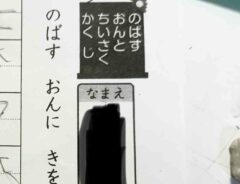 のばす
おんと
ちいさく
かくじ
なまえ
のばす おんに きを